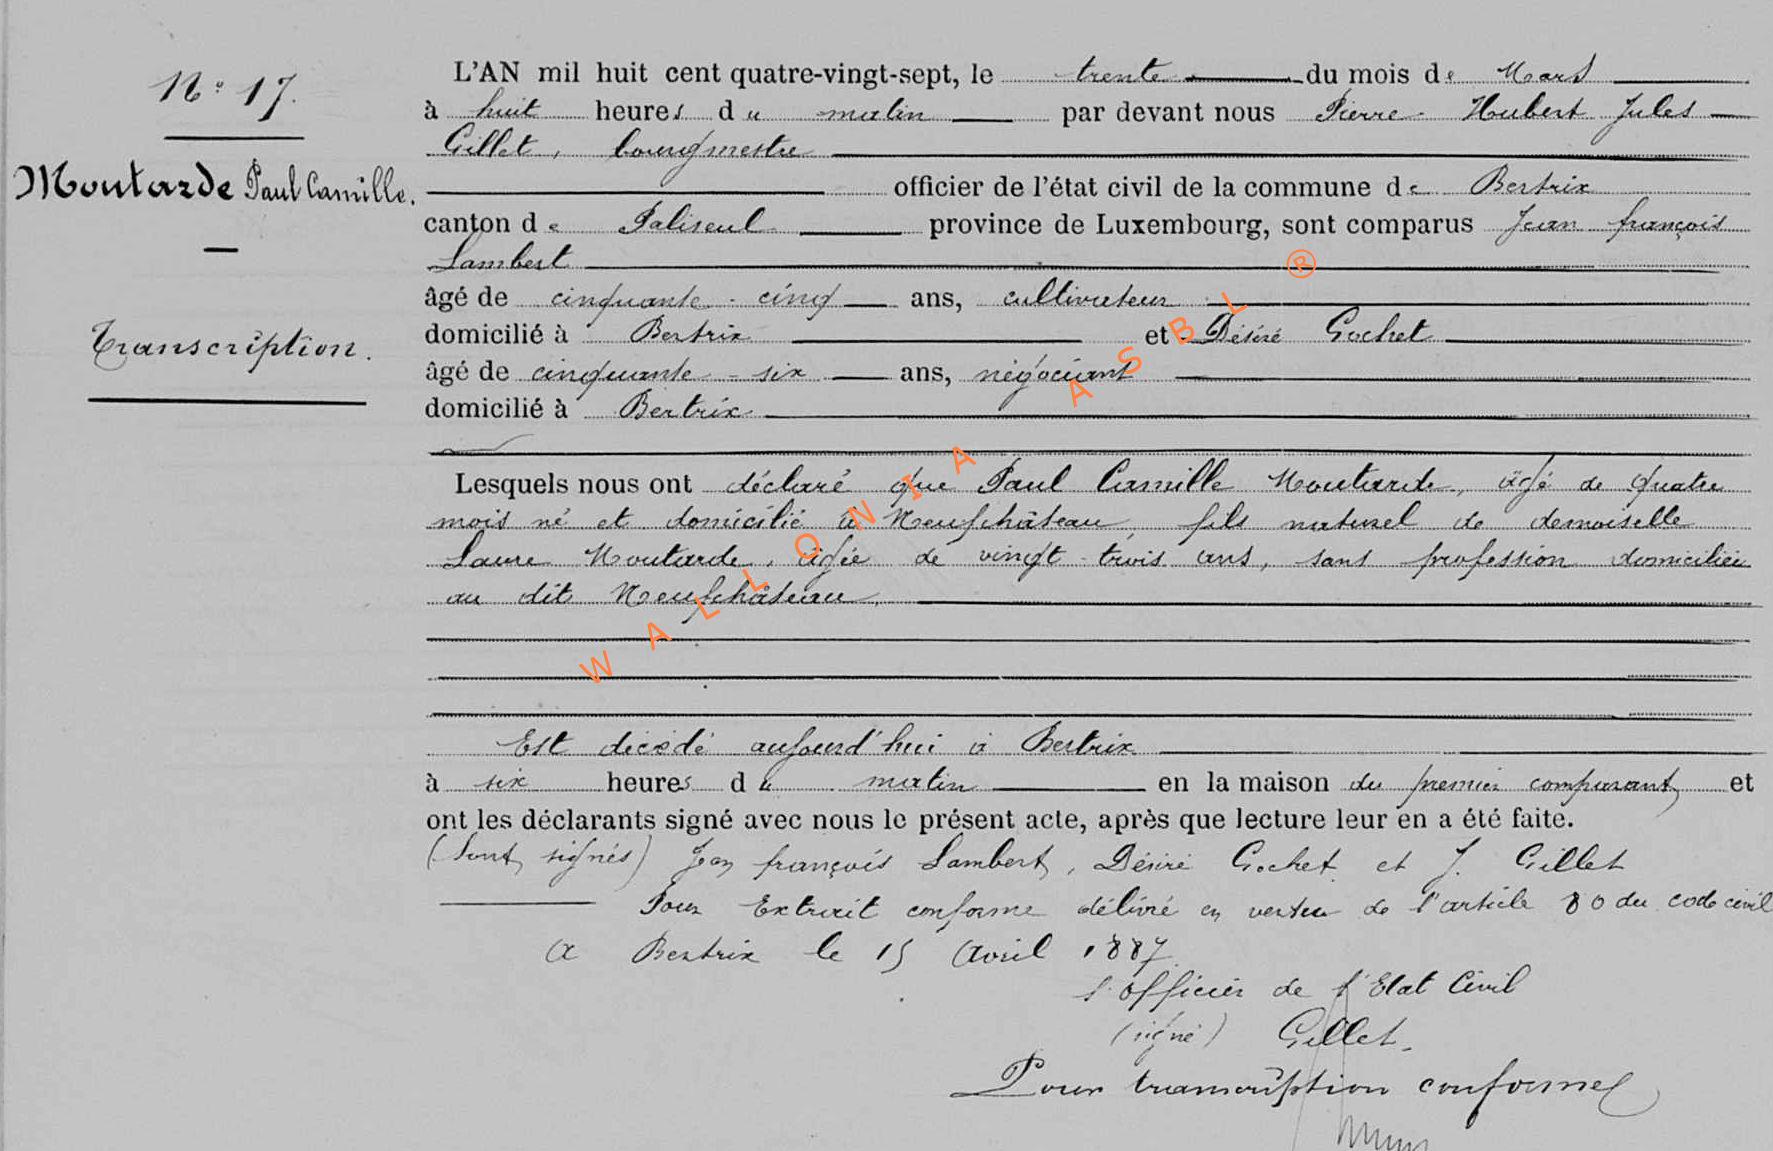 N° 17.
Moutarde Paul Camille.
Transcription.
L'AN mil huit cent quatre-vingt-sept, le trente du mois de Mars
à huit heures du matin par devant nous Pierre Hubert Jules
Gillet, bourgmestre
officier de l'état civil de la commune de Bertrix
canton de Paliseul province de Luxembourg, sont comparus Jean françois
Lambert
âgé de cinquante-cinq ans, cultivateur
domicilié à Bertrix et Désiré Gochet
âgé de cinquante-six ans, négociant
domicilié à Bertrix
Lesquels nous ont déclaré que Paul Camille Moutarde, âgé de quatre
mois né et domicilié à Neufchâteau, fils naturel de demoiselle
Laure Moutarde, âgée de vingt-trois ans, sans profession domiciliée
au dit Neufchâteau.
Est décédé aujourd'hui à Bertrix
à six heures du matin en la maison du premier comparant, et
ont les déclarants signé avec nous le présent acte, après que lecture leur en a été faite.
(Sont signés) Jean françois Lambert, Désiré Gochet et J. Gillet
Pour Extrait conforme délivré en vertu de l'article 80 du code civil
A Bertrix le 15 Avril 1887.
L'officier de l'Etat Civil
(signé) Gillet.
Pour transcription conforme
WALLONIA ASBL ®